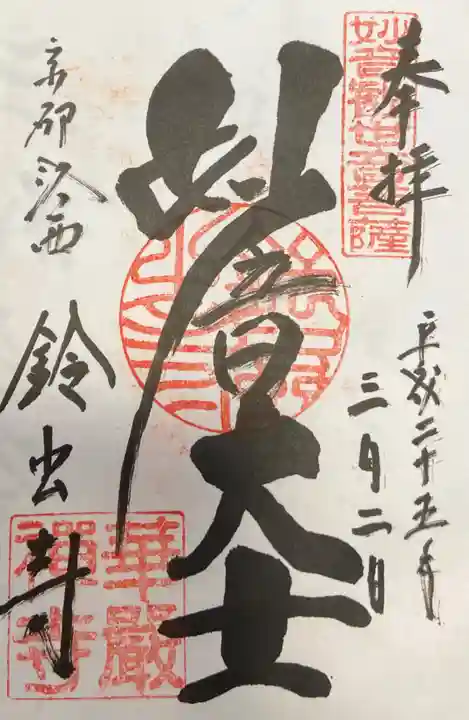 奉拝
妙音観世音菩薩
平成二十五年
三月二日
妙音大士
京都洛西
鈴虫寺
華嚴禪寺